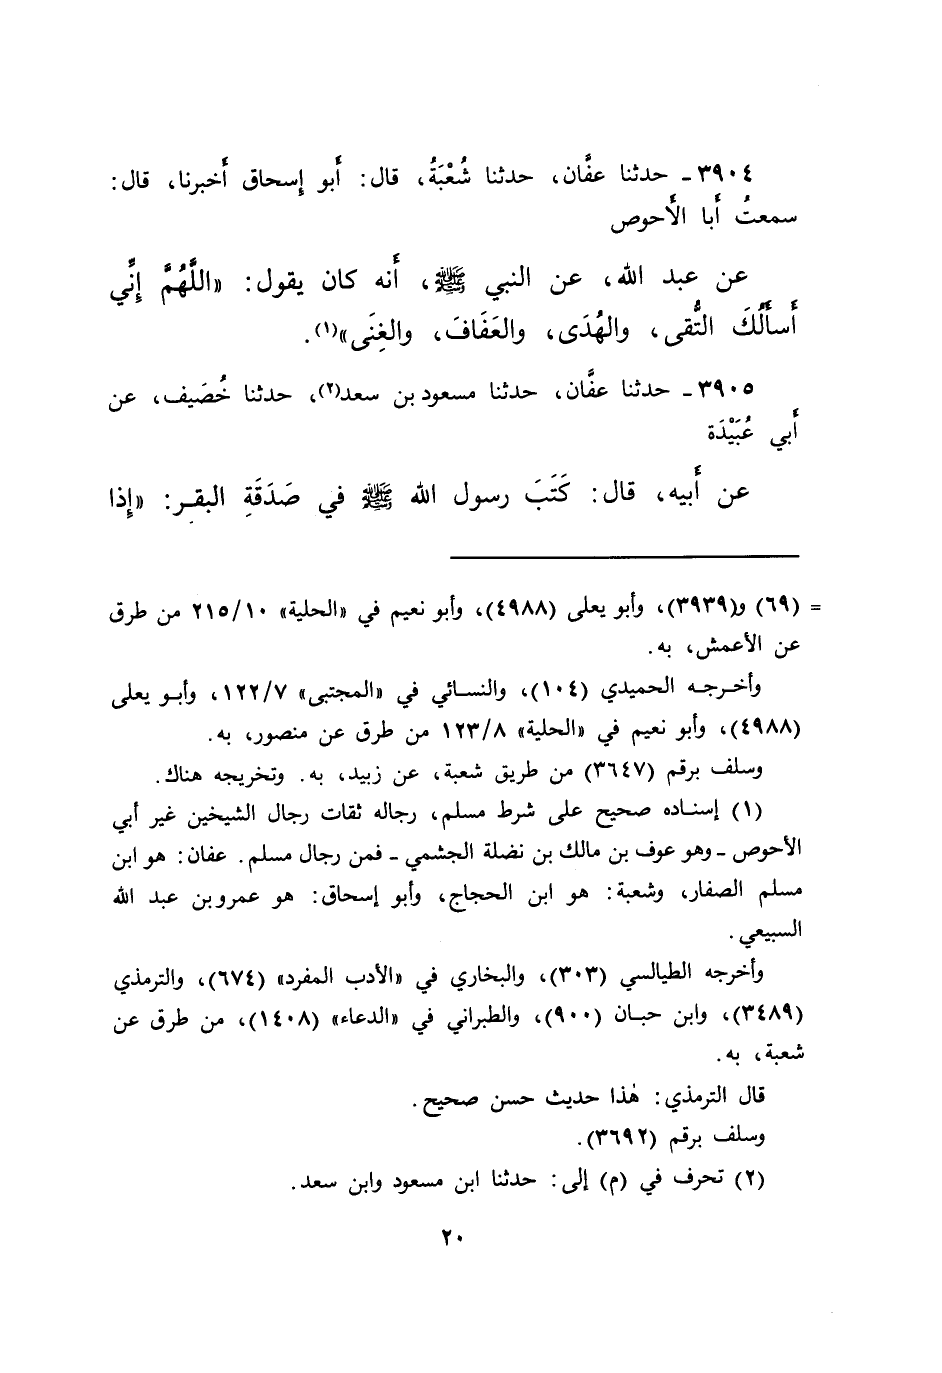 ٣٩٠٤ ـ حدثنا عفَّان، حدثنا شُعْبَةُ، قال: أَبو إِسحاق أَخبرنا، قال:
سمعتُ أَبا الأَحوص
عن عبد الله، عن النبي ﷺ، أَنه كان يقول: «اللَّهُمَّ إِنِّي
أَسأَلُكَ التُّقى، والهُدَى، والعَفَافَ، والغِنَى»(١).
٣٩٠٥ ـ حدثنا عفَّان، حدثنا مسعود بن سعد(٢)، حدثنا خُصَيف، عن
أَبي عُبَيْدَة
عن أَبيه، قال: كَتَبَ رسول الله ﷺ في صَدَقَةِ البقر: «إِذا
= (٦٩) و(٣٩٣٩)، وأبو يعلى (٤٩٨٨)، وأبو نعيم في «الحلية» ٢١٥/١٠ من طرق
عن الأعمش، به.
وأخرجه الحميدي (١٠٤)، والنسائي في «المجتبى» ١٢٢/٧، وأبو يعلى
(٤٩٨٨)، وأبو نعيم في «الحلية» ١٢٣/٨ من طرق عن منصور، به.
وسلف برقم (٣٦٤٧) من طريق شعبة، عن زبيد، به. وتخريجه هناك.
(١) إسناده صحيح على شرط مسلم، رجاله ثقات رجال الشيخين غير أبي
الأحوص ـ وهو عوف بن مالك بن نضلة الجشمي ـ فمن رجال مسلم. عفان: هو ابن
مسلم الصفار، وشعبة: هو ابن الحجاج، وأبو إسحاق: هو عمرو بن عبد الله
السبيعي.
وأخرجه الطيالسي (٣٠٣)، والبخاري في «الأدب المفرد» (٦٧٤)، والترمذي
(٣٤٨٩)، وابن حبان (٩٠٠)، والطبراني في «الدعاء» (١٤٠٨)، من طرق عن
شعبة، به.
قال الترمذي: هٰذا حديث حسن صحيح.
وسلف برقم (٣٦٩٢).
(٢) تحرف في (م) إلى: حدثنا ابن مسعود وابن سعد.
٢٠